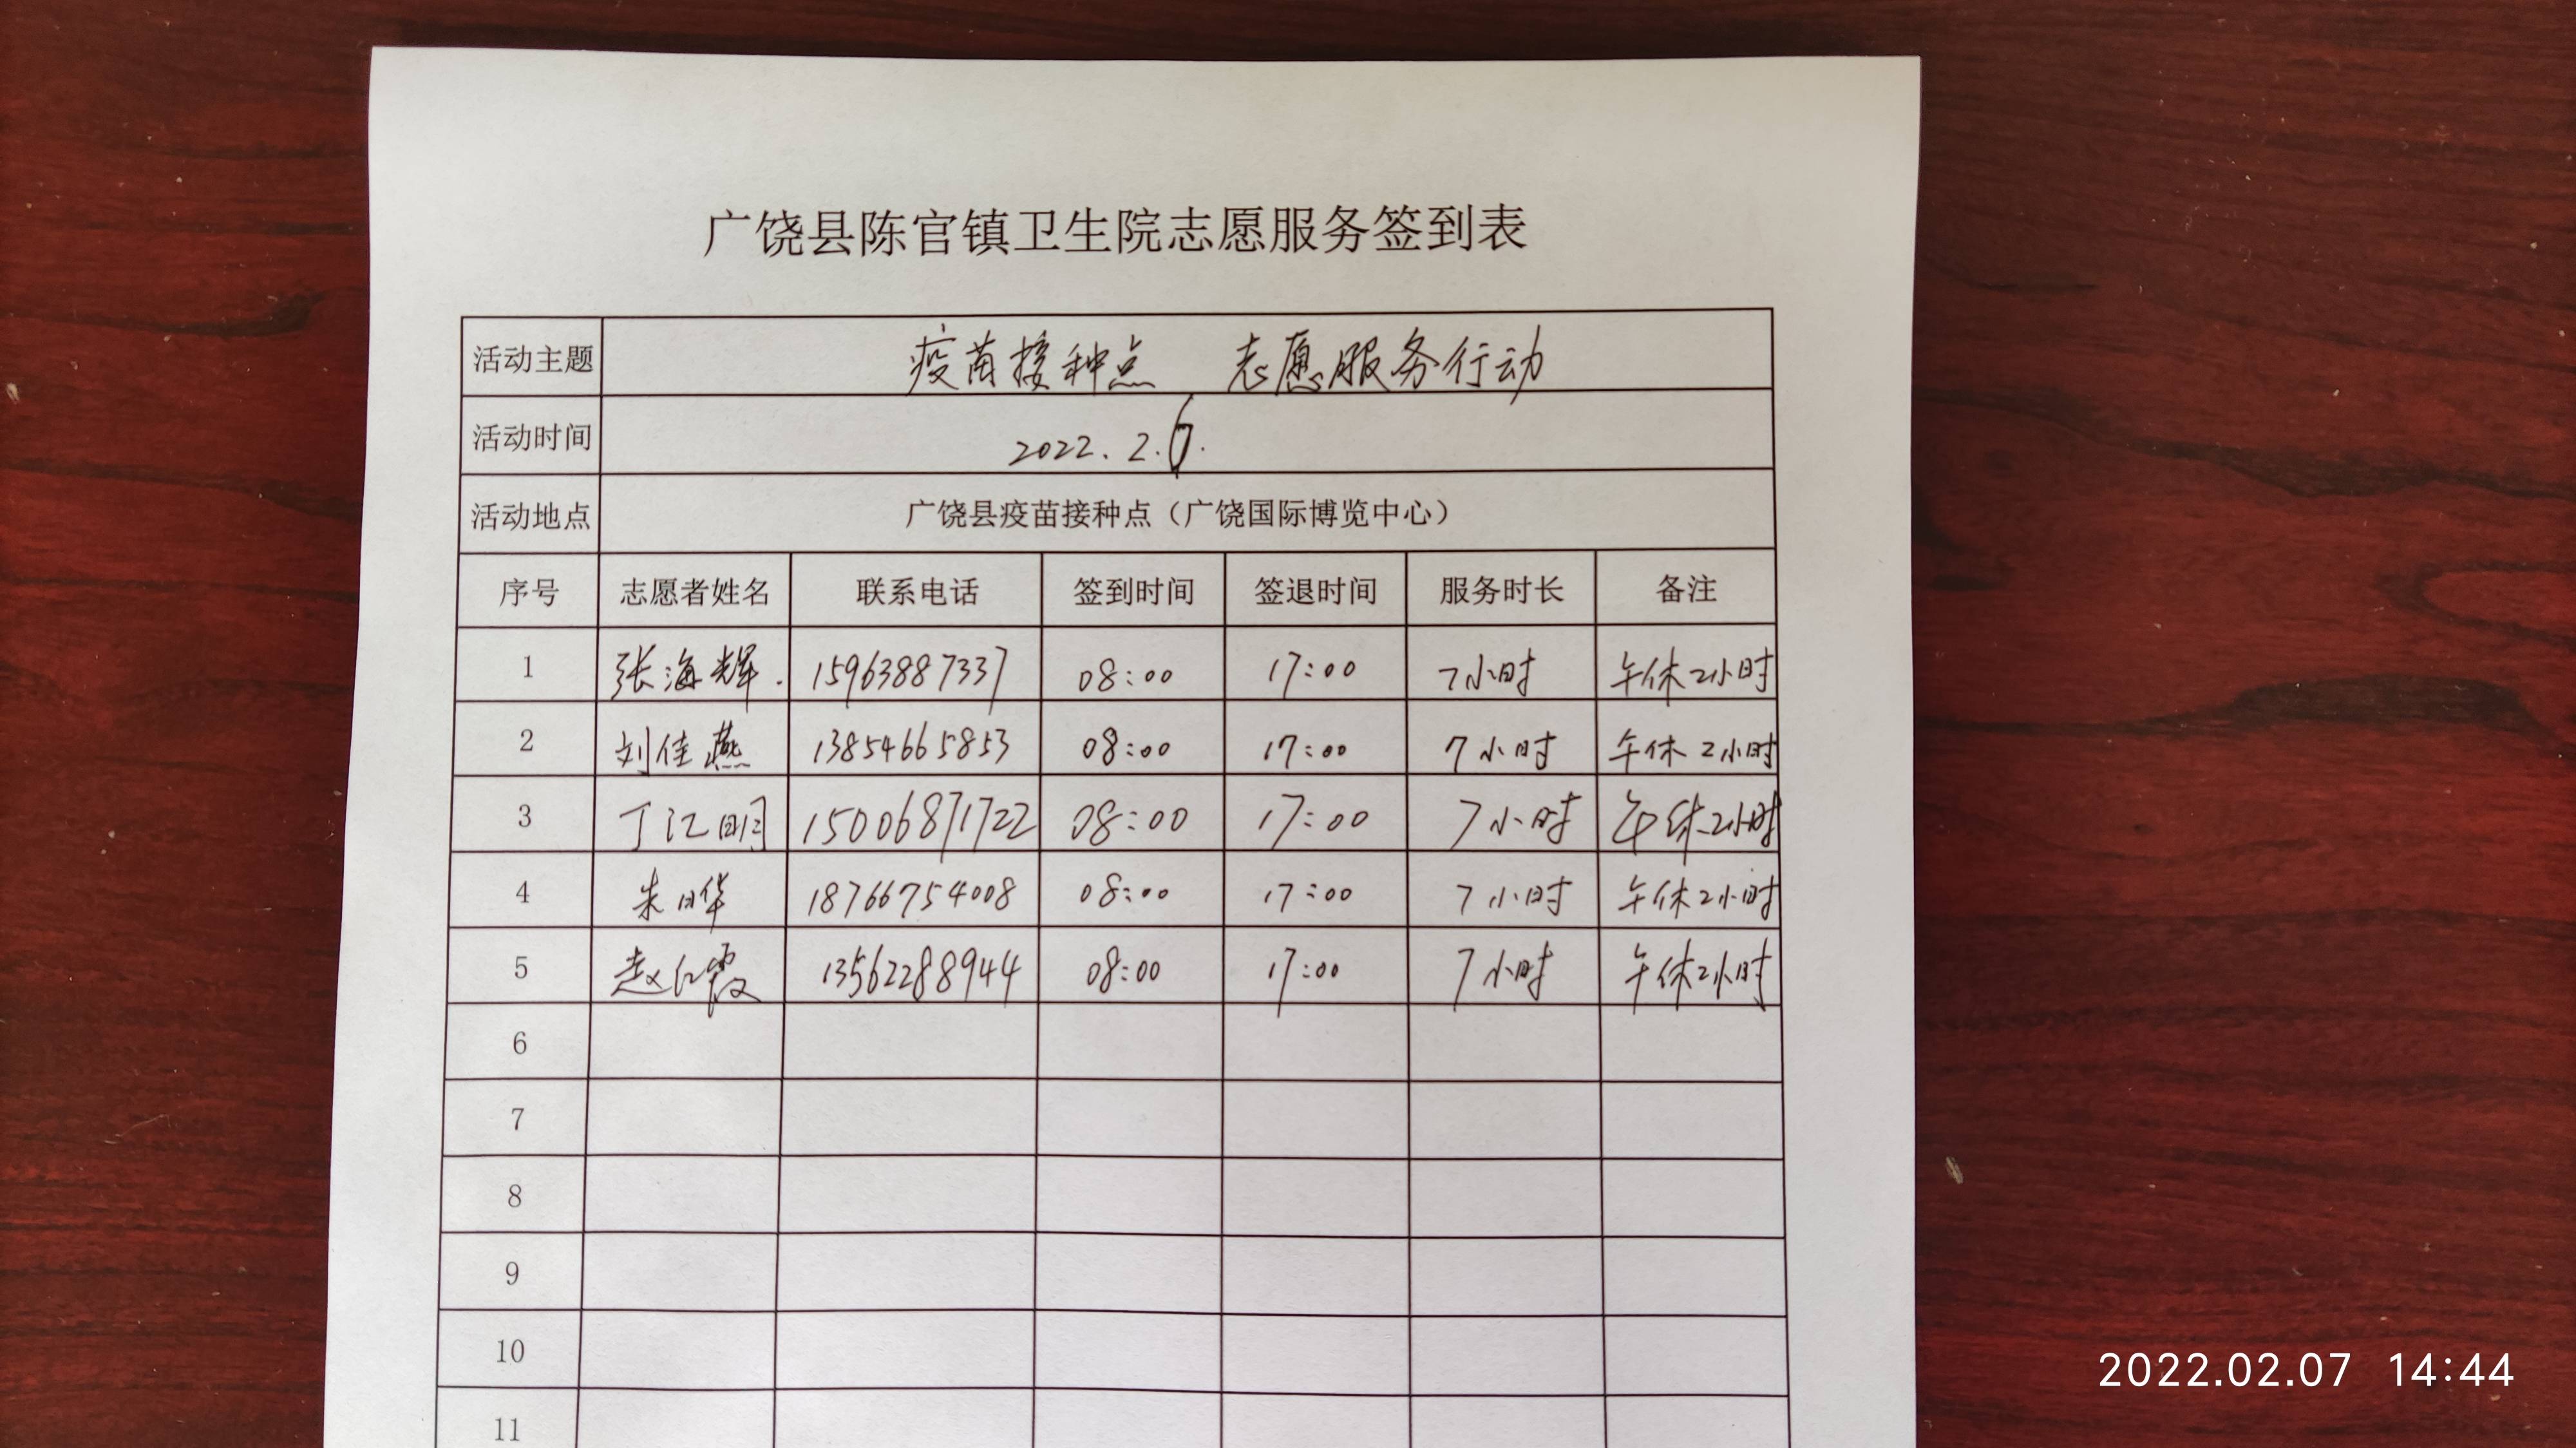 广饶县陈官镇卫生院志愿服务签到表
活动主题 疫苗接种点 志愿服务行动
活动时间 2022.2.6.
活动地点 广饶县疫苗接种点（广饶国际博览中心）
序号 志愿者姓名 联系电话 签到时间 签退时间 服务时长 备注
1 张海辉. 15963887337 08:00 17:00 7小时 午休2小时
2 刘佳燕 13854665853 08:00 17:00 7小时 午休2小时
3 丁江明 15006871722 08:00 17:00 7小时 午休2小时
4 朱晔 18766754008 08:00 17:00 7小时 午休2小时
5 赵红霞 13562288944 08:00 17:00 7小时 午休2小时
6
7
8
9
10
11
2022.02.07 14:44